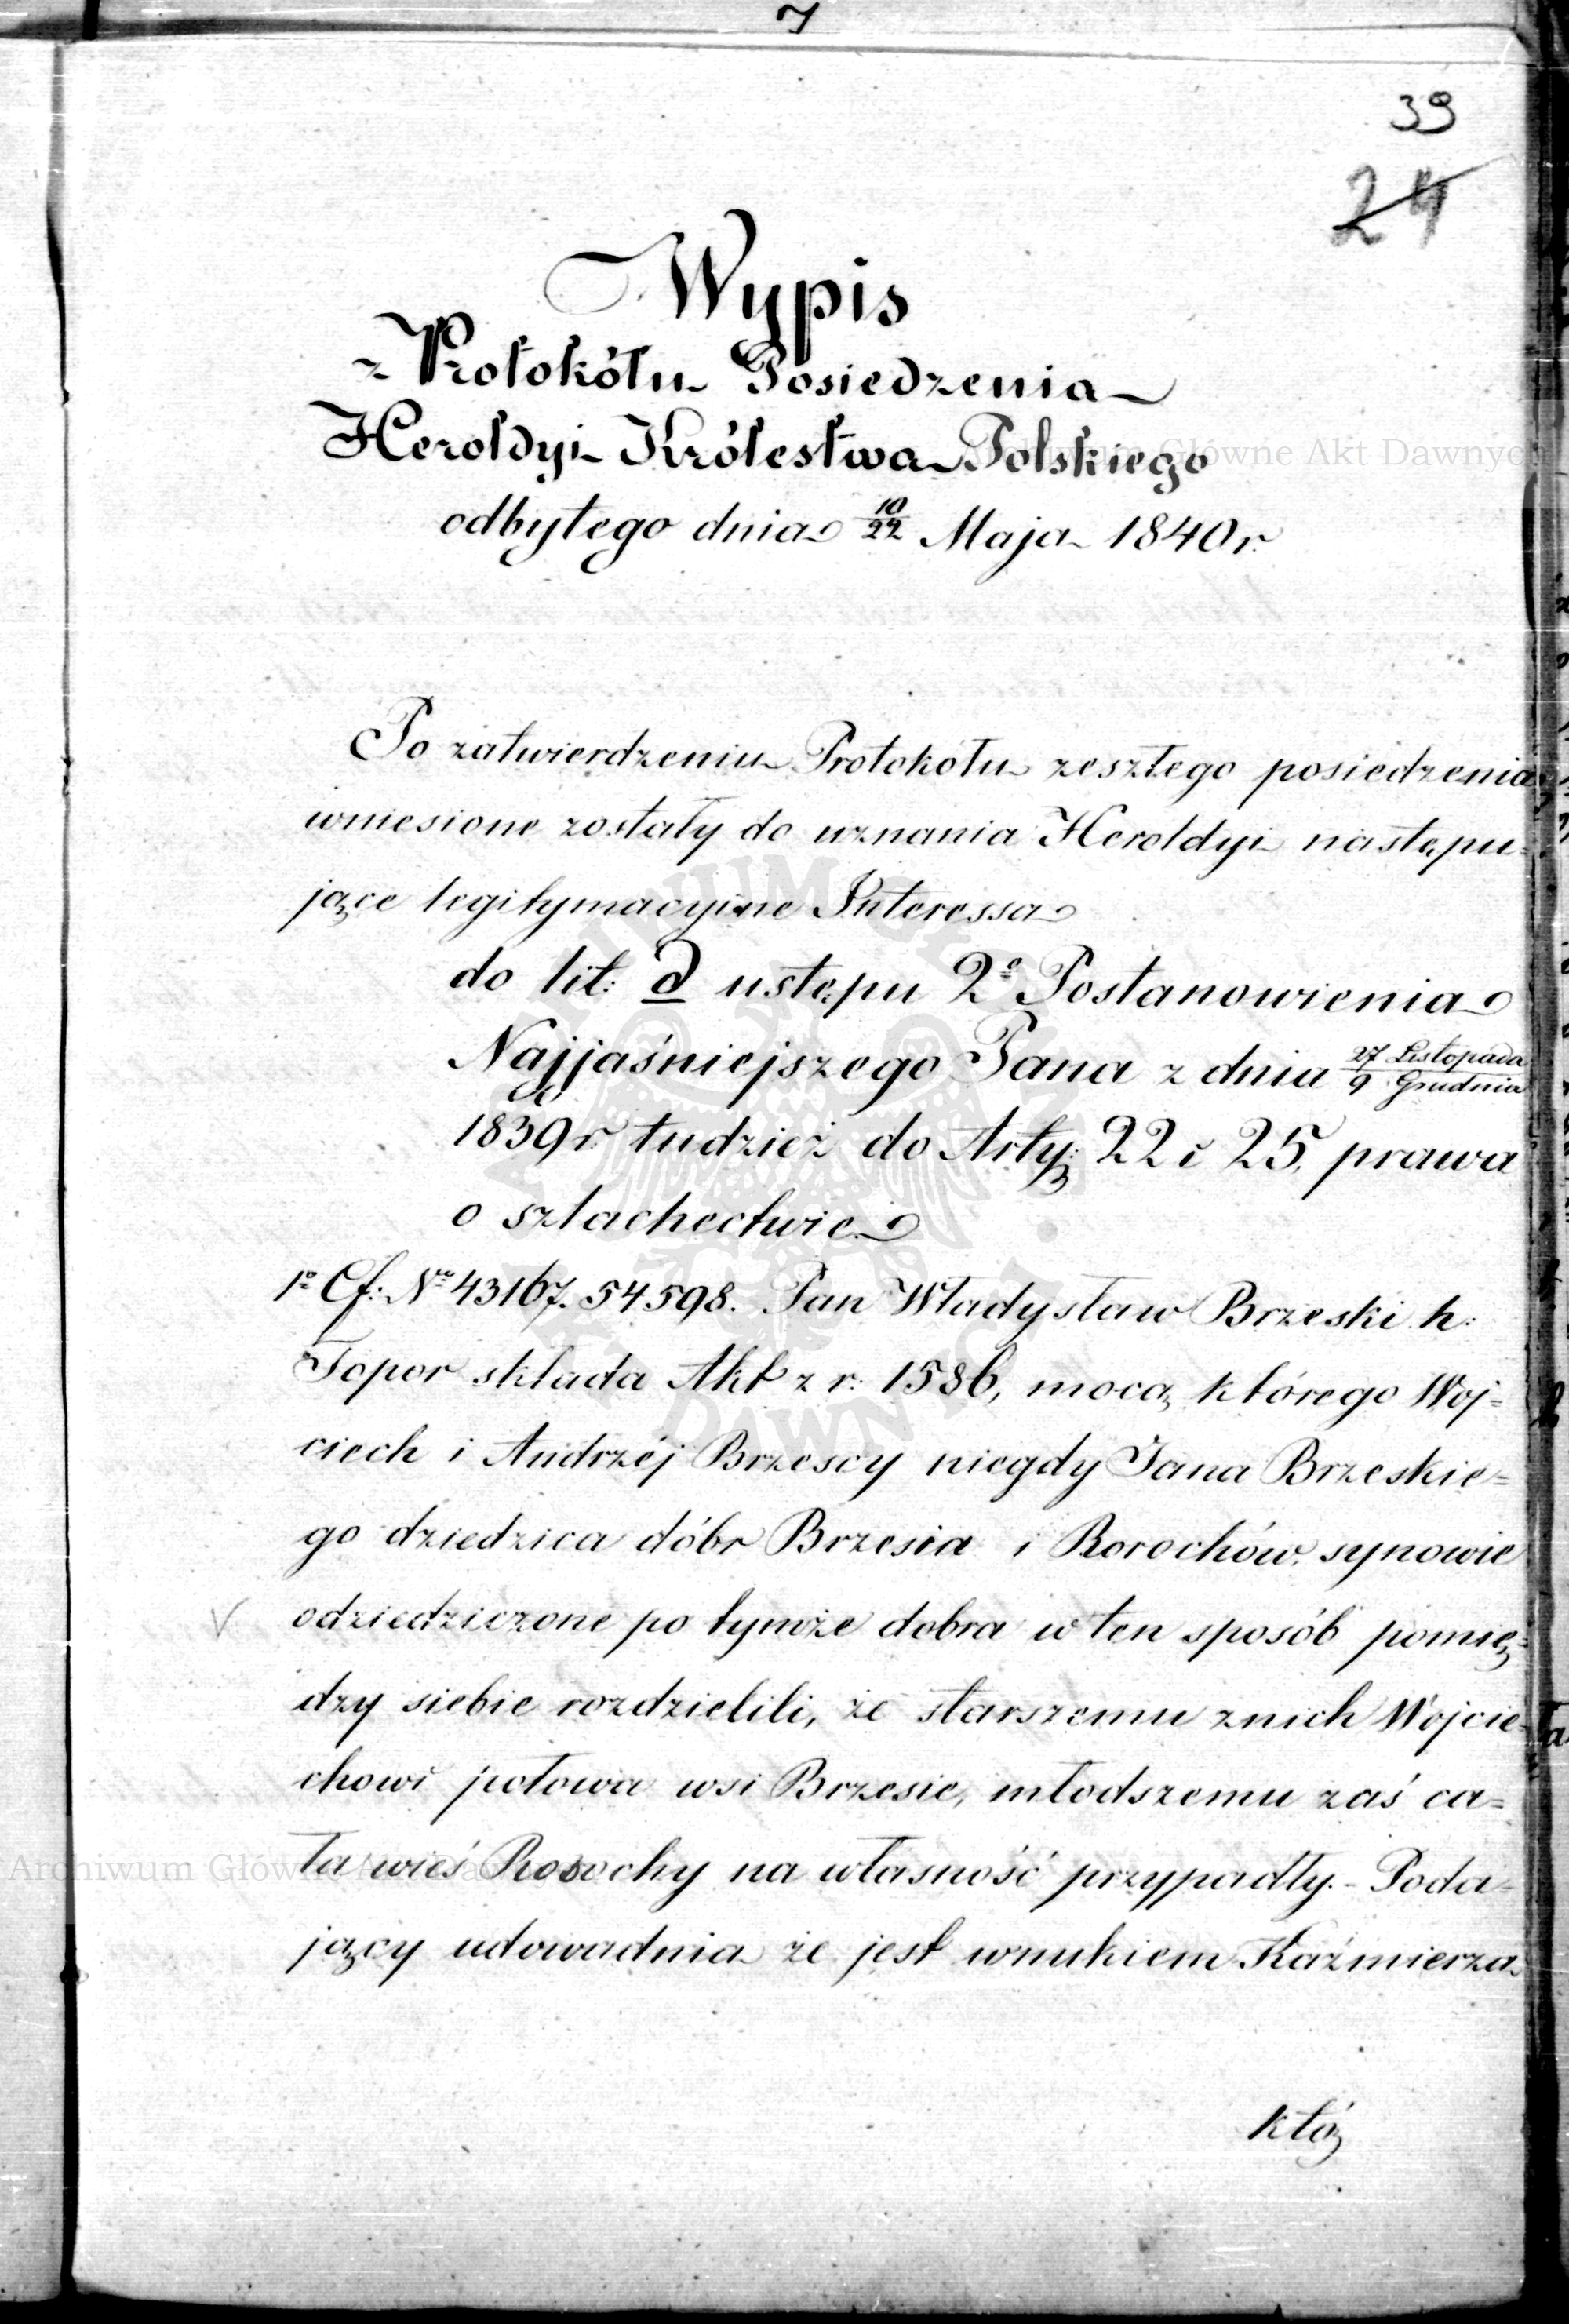 7
39
24
Wypis
z Protokółu Posiedzenia
Heroldyi Królestwa Polskiego
odbytego dnia 10/22 Maja 1840 r.
Po zatwierdzeniu Protokółu zeszłego posiedzenia
wniesione zostały do uznania Heroldyi następu=
jące legitymacyine Interessa
do lit: d ustępu 2º Postanowienia
Najjaśniejszego Pana z dnia 27 Listopada/9 Grudnia
1839 r. tudzież do Arty: 22 i 25, prawa
o szlachectwie.
1º Cf: Nro 43167. 54598. Pan Władysław Brzeski h:
Topor składa Akt z r: 1586, mocą którego Woj=
ciech i Andrzéj Brzescy niegdy Jana Brzeskie=
go dziedzica dóbr Brzesia i Rorochów, synowie
odziedziczone po tymże dobra w ten sposób pomię=
dzy siebie rozdzielili, że starszemu z nich Wojcie=
chowi połowa wsi Brzesie, młodszemu zaś ca=
ła wieś Rosochy na własność przypadły. - Poda=
jący udowadnia że jest wnukiem Kaźmierza
któ
Archiwum Główne Akt Dawnych